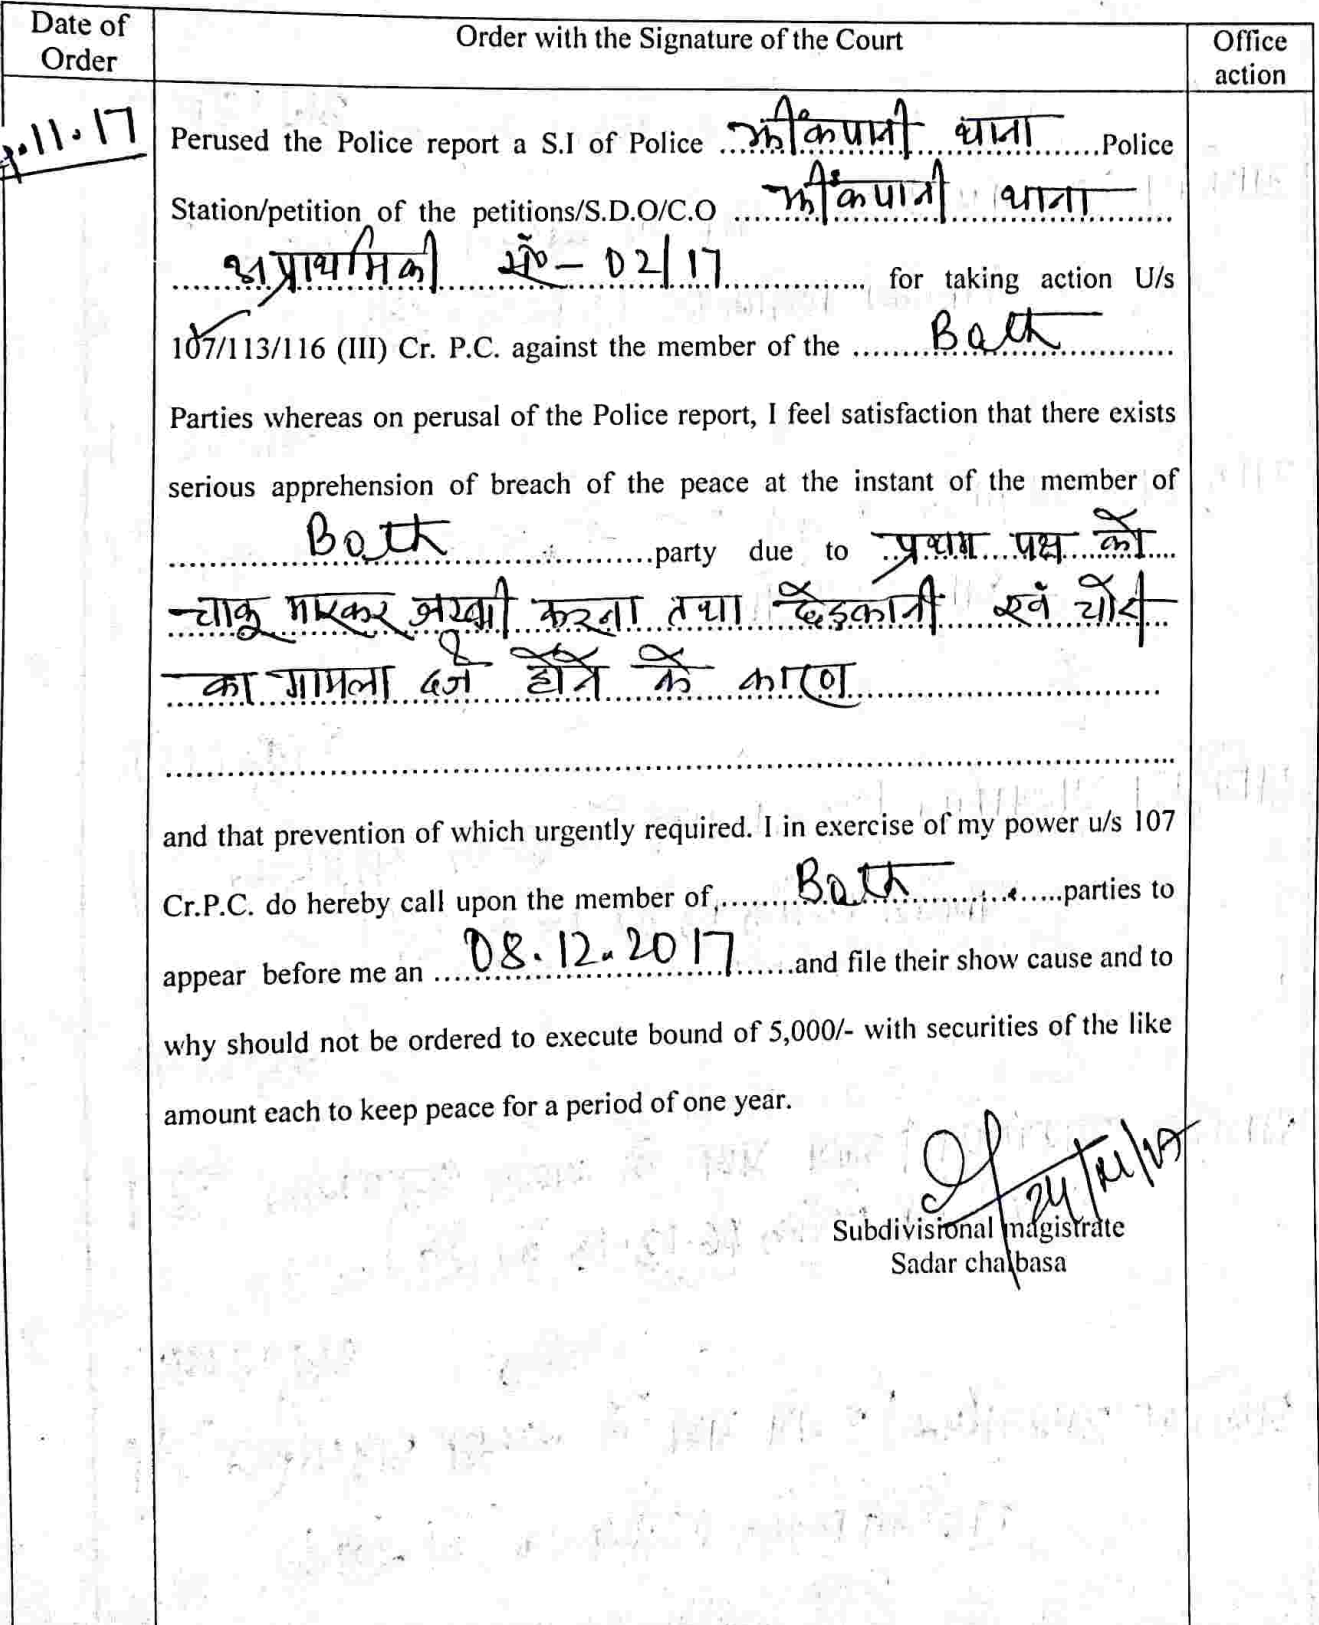 Date of Order
Order with the Signature of the Court
Office action
.11.17
Perused the Police report a S.I of Police ...झींकपानी थाना...Police
Station/petition of the petitions/S.D.O/C.O ...झींकपानी थाना...
...अप्राथमिकी सं०- 02/17... for taking action U/s
107/113/116 (III) Cr. P.C. against the member of the ...Both...
Parties whereas on perusal of the Police report, I feel satisfaction that there exists
serious apprehension of breach of the peace at the instant of the member of
...Both...party due to प्रथम पक्ष को
चाकू मारकर जख्मी करना तथा छेड़कानी एवं चोरी
का मामला दर्ज होने के कारण...
and that prevention of which urgently required. I in exercise of my power u/s 107
Cr.P.C. do hereby call upon the member of,...Both...parties to
appear before me an ...08.12.2017...and file their show cause and to
why should not be ordered to execute bound of 5,000/- with securities of the like
amount each to keep peace for a period of one year.
24/11/17
Subdivisional magistrate
Sadar chaibasa